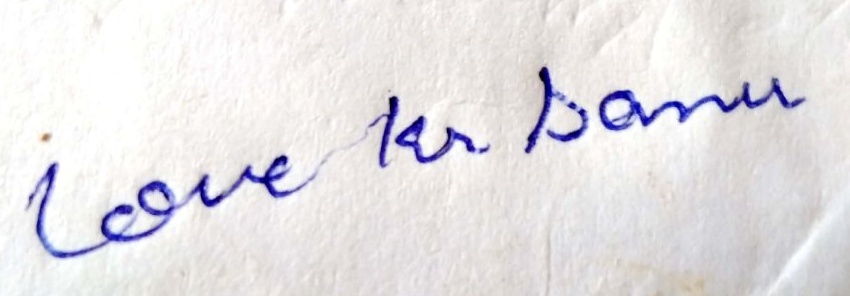 Love kr Sanu